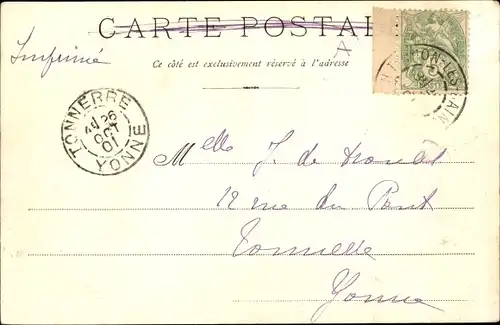 CARTE POSTALE
Imprimé
Ce côté est exclusivement réservé à l'adresse
TONNERRE
26
OCT
01
YONNE
Mlle J. de
12 rue du Pont
Tonnerre
Yonne